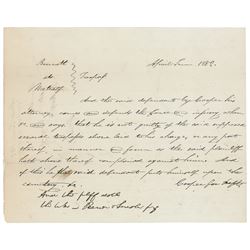 Burnett
vs
Metcalf
Trespass
April Term 1862
And the said defendant by Cooper his
attorney, comes and defends the force & injury when
&c and says that he is not guilty of the said supposed
trespass above laid to his charge, or any part
thereof in manner & form as the said plaintiff
hath above thereof complained against him And
of this he the said defendant puts himself upon the
country &c.
Cooper for Deft
And the plff doth
the like